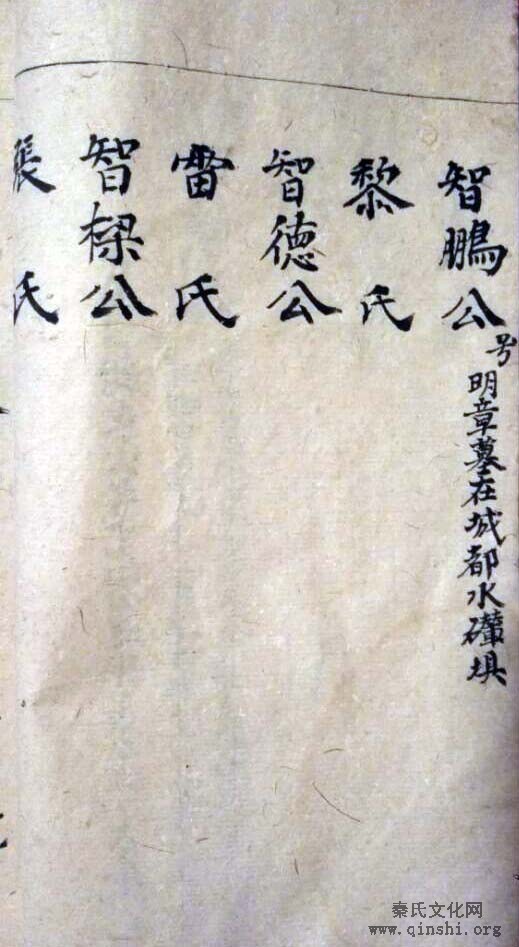 智鵬公
号明章墓在城都水埧
黎氏
智德公
雷氏
智樑公
張氏
秦氏文化网
www.qinshi.org